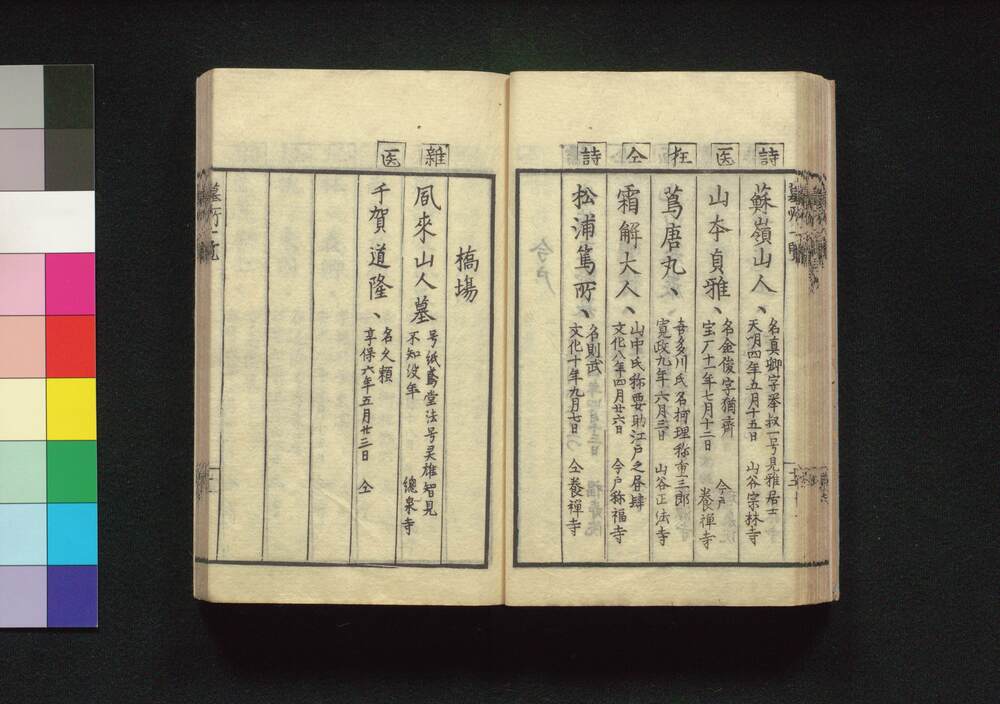 詩
蘇嶺山人、
名真卿字挙叔一号見雅居士
天明四年五月十五日 山谷宗林寺
医
山本貞雅、
名金俊字猶斉
宝厂十一年七月十二日 今戸養禅寺
狂
蔦唐丸、
喜多川氏名柯理称重三郎
寛政九年六月三日 山谷正法寺
仝
霜解大人、
山中氏称要助江戸之昼肆
文化八年四月廿六日 今戸称福寺
詩
松浦篤所、
名則武
文化十年九月七日 仝養禅寺
橋場
雑
風来山人墓
号紙鳶堂法号灵雄智見
不知没年 總泉寺
医
千賀道隆、
名久頼
享保六年五月廿三日 仝
墓所一覧